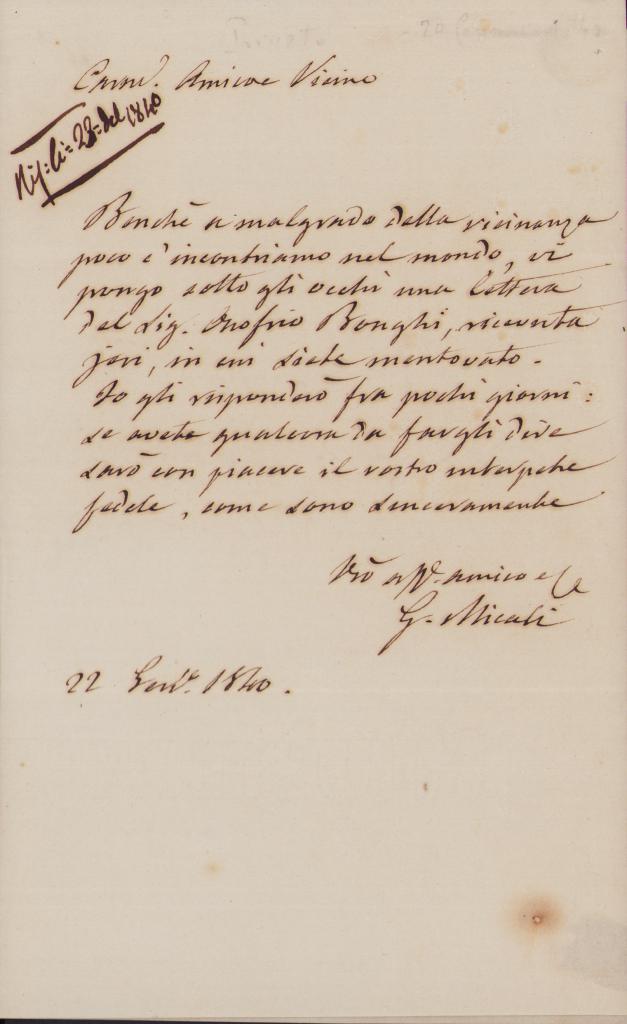 Carmo. Amico e Vicino
Risp: li= 23= del 1840
Benchè a malgrado della vicinanza
poco c'incontriamo nel mondo, vi
pongo sotto gli occhi una lettera
del Sig. Onofrio Bonghi, ricevuta
jeri, in cui siete mentovato.
Io gli risponderò fra pochi giorni:
se avete qualcosa da fargli dire
sarò con piacere il vostro interprete
fedele, come sono sinceramente
Vro aff. amico e
G. Micali
22 Genn. 1840.